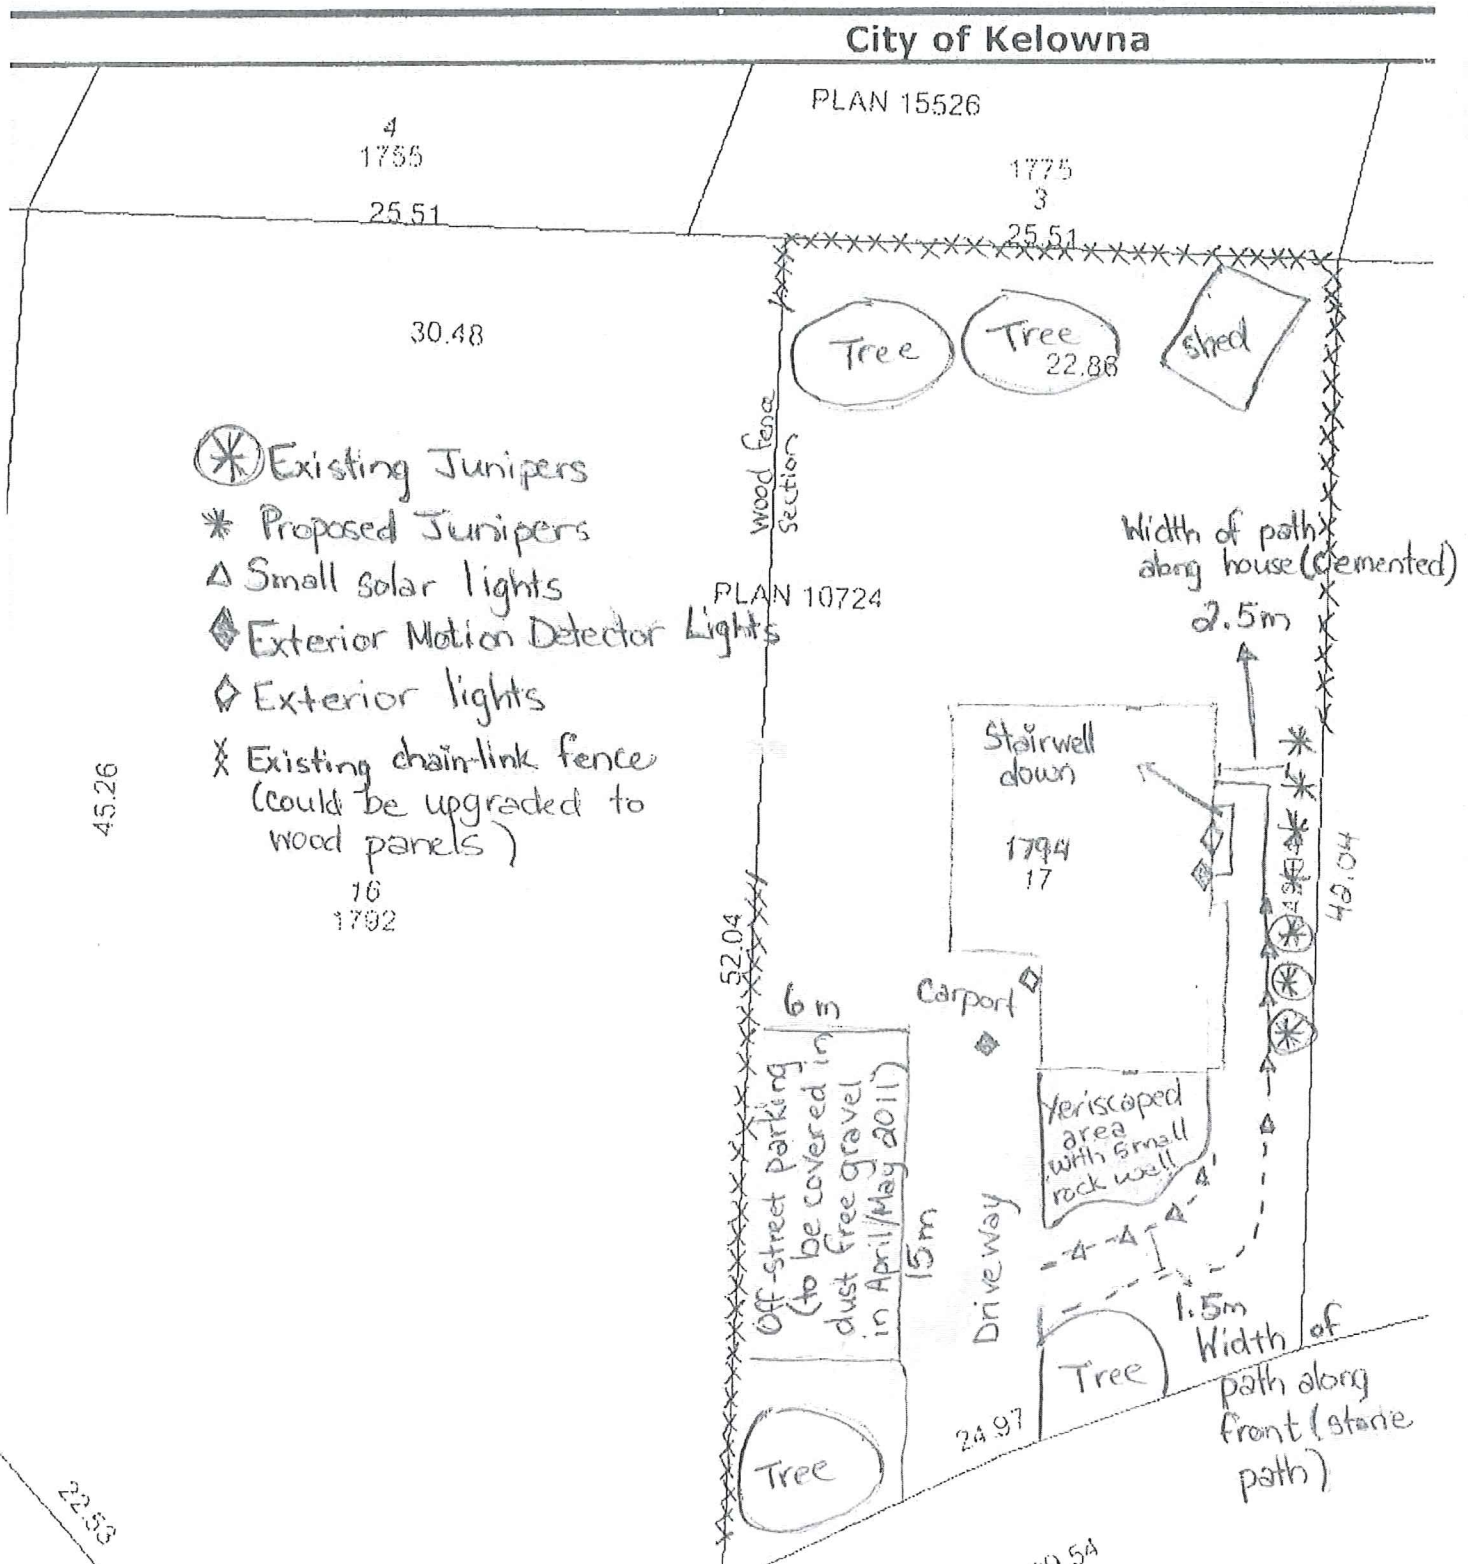 City of Kelowna
PLAN 15526
4
1755
25.51
1775
3
25.51
30.48
Tree
Tree
22.86
shed
Wood fence
section
Existing Junipers
Proposed Junipers
Small solar lights
Exterior Motion Detector Lights
Exterior lights
Existing chain-link fence
(could be upgraded to
wood panels)
PLAN 10724
Width of path
along house (cemented)
2.5m
Stairwell
down
1794
17
45.26
16
1792
52.04
42.04
6m
Carport
Off-street parking
(to be covered in
dust free gravel
in April/May 2011)
15m
Driveway
Xeriscaped
area
with small
rock wall
1.5m
Width of
path along
front (stone
path)
Tree
24.97
Tree
22.53